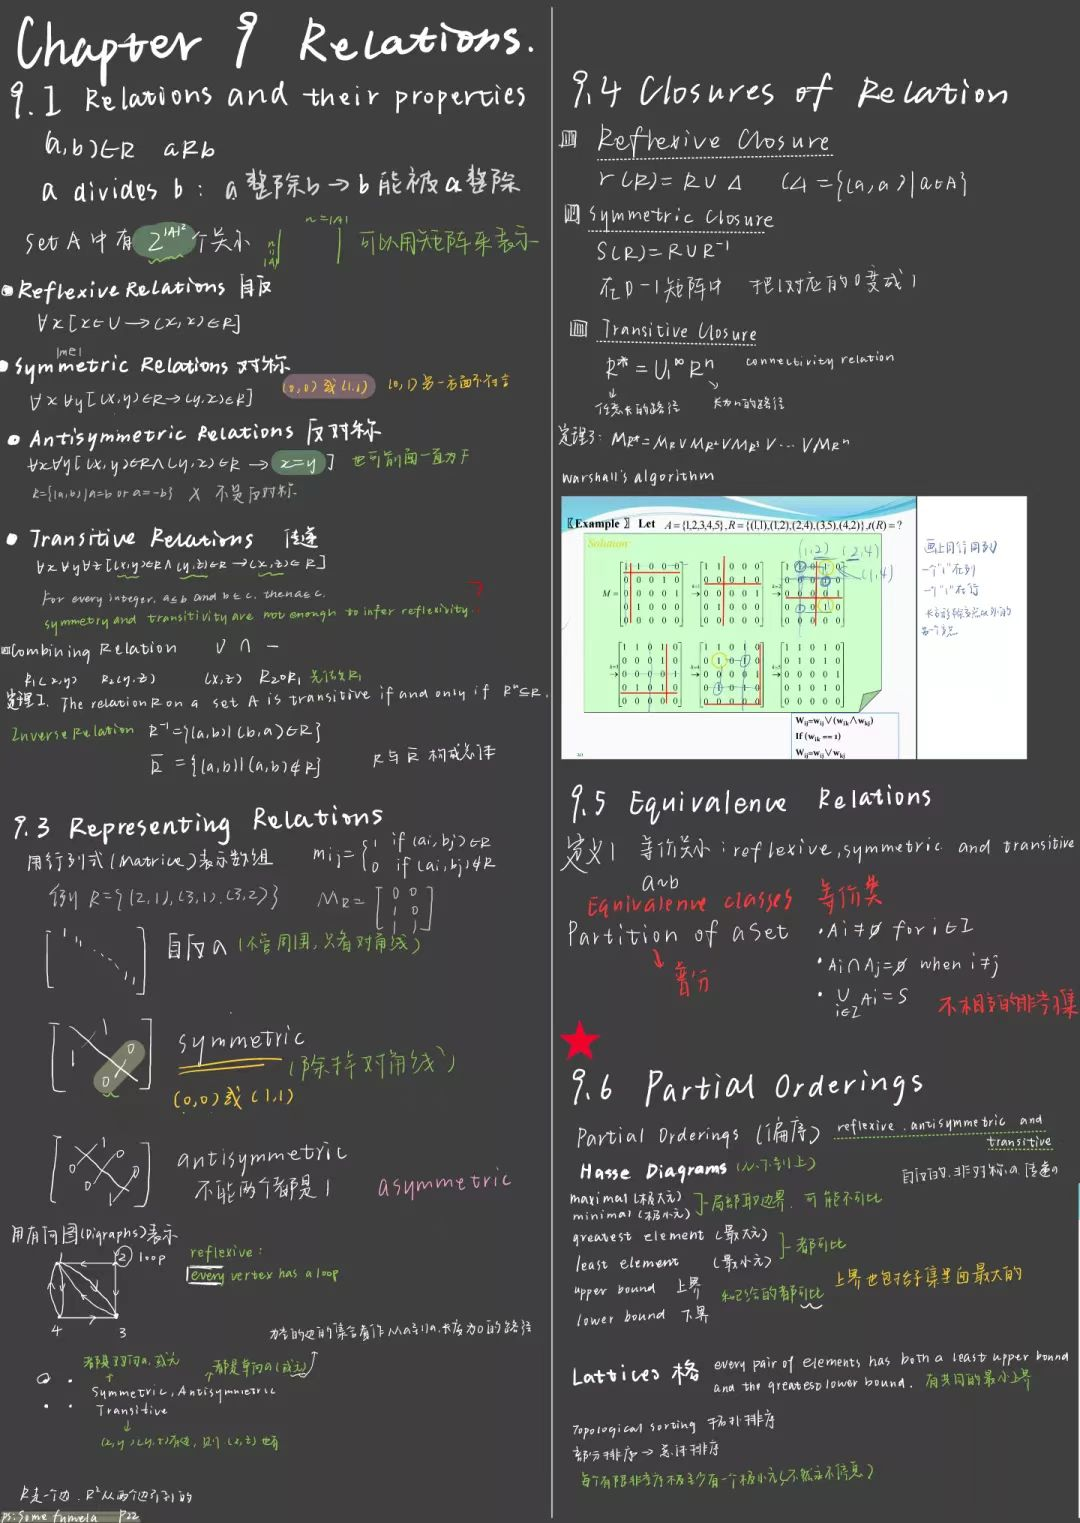 Chapter 9 Relations.
9.1 Relations and their properties
(a,b)∈R aRb
a divides b : a整除b→b能被a整除
set A 中有 2^|A|² 个关系 n=|A| 可以用矩阵来表示
n=|A|
Reflexive Relations 自反
∀x[x∈U→(x,x)∈R]
|me|
Symmetric Relations 对称
(0,0)或(1,1) (0,1)
∀x∀y[(x,y)∈R→(y,x)∈R]
Antisymmetric Relations 反对称
∀x∀y[(x,y)∈R∧(y,x)∈R→x=y] 也可前面一直为F
R={(a,b)|a=b or a=-b} X 不是反对称
Transitive Relations 传递
∀x∀y∀z[(x,y)∈R∧(y,z)∈R→(x,z)∈R]
For every integer, a≤b and b≤c, then a≤c.
symmetry and transitivity are not enough to infer reflexivity. ?
Combining Relation ∪ ∩ −
R₁(x,y) R₂(y,z) (x,z) R₂∘R₁ 先做R₁
定理1. The relation R on a set A is transitive if and only if Rⁿ⊆R.
Inverse Relation R⁻¹={(a,b)|(b,a)∈R}
R̅ ={(a,b)|(a,b)∉R} R与R̅ 构成总体
9.3 Representing Relations
用行列式(Matrice)表示数组 mij={1 if (ai,bj)∈R
0 if (ai,bj)∉R
例 R={(2,1),(3,1),(3,2)} MR=[0 0
1 0
1 1]
1 1 1 自反a (不管周围,只看对角线)
1 0
1 0 symmetric (除掉对角线)
(0,0)或(1,1)
1 0
0 0 1 0 antisymmetric
不能两个都是1 asymmetric
用有向图(Digraphs)表示
1 2 loop reflexive:
every vertex has a loop
4 3
都是双向a,或无 都是单向a(或无)
Symmetric, Antisymmetric
Transitive
(x,y)(y,z)有边, 则(x,z)也有
R是一个边. R²从两个边
ps:some fumela P22
9.4 Closures of Relation
Reflexive Closure
r(R)=R∪Δ (Δ={(a,a)|a∈A}
Symmetric Closure
S(R)=R∪R⁻¹
在0-1矩阵中 把1对应的0变成1
Transitive Closure
R*=∪₁^∞ Rⁿ connectivity relation
任意长的路径 长为n的路径
定理3: MR*=MR∨MR²∨MR³∨...∨MRⁿ
warshall's algorithm
〖Example 〗 Let A={1,2,3,4,5}, R={(1,1),(1,2),(2,4),(3,5),(4,2)}, t(R)=?
Solution:
(1,2) (2,4)
(1,4)
M=
k=1
k=2
k=3
k=4
k=5
画上同行同列
一个"1"在列
一个"1"在行
Wij=wij∨(wik∧wkj)
If (wik == 1)
Wij=wij∨wkj
9.5 Equivalence Relations
定义1 等价关系:reflexive, symmetric and transitive
a~b
Equivalence classes 等价类
Partition of a Set
• Ai≠∅ for i∈I
• Ai∩Aj=∅ when i≠j
• ∪ Ai=S
i∈I
不相交的非空子集
9.6 Partial Orderings
Partial Orderings (偏序) reflexive, antisymmetric and
transitive
自反的,非对称a,传递a
Hasse Diagrams (从下到上)
maximal (极大元)
minimal (极小元) 局部取边界,可能不可比
greatest element (最大元)
least element (最小元) 都可比
upper bound 上界 和已给的都可比 上界也包括子集里面最大的
lower bound 下界
Lattices 格 every pair of elements has both a least upper bound
and the greatest lower bound. 有共同的最小上界
Topological sorting 拓扑排序
部分排序→总体排序
每个有限非空序极至少有一个极小元(不然永不停息)